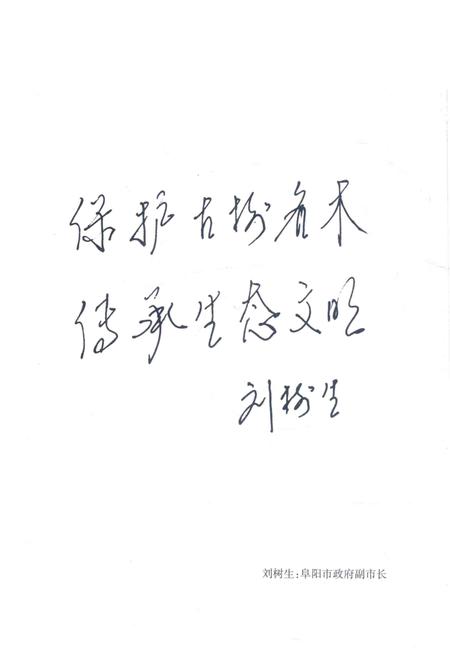 保护古树名木
传承生态文明
刘树生
刘树生：阜阳市政府副市长